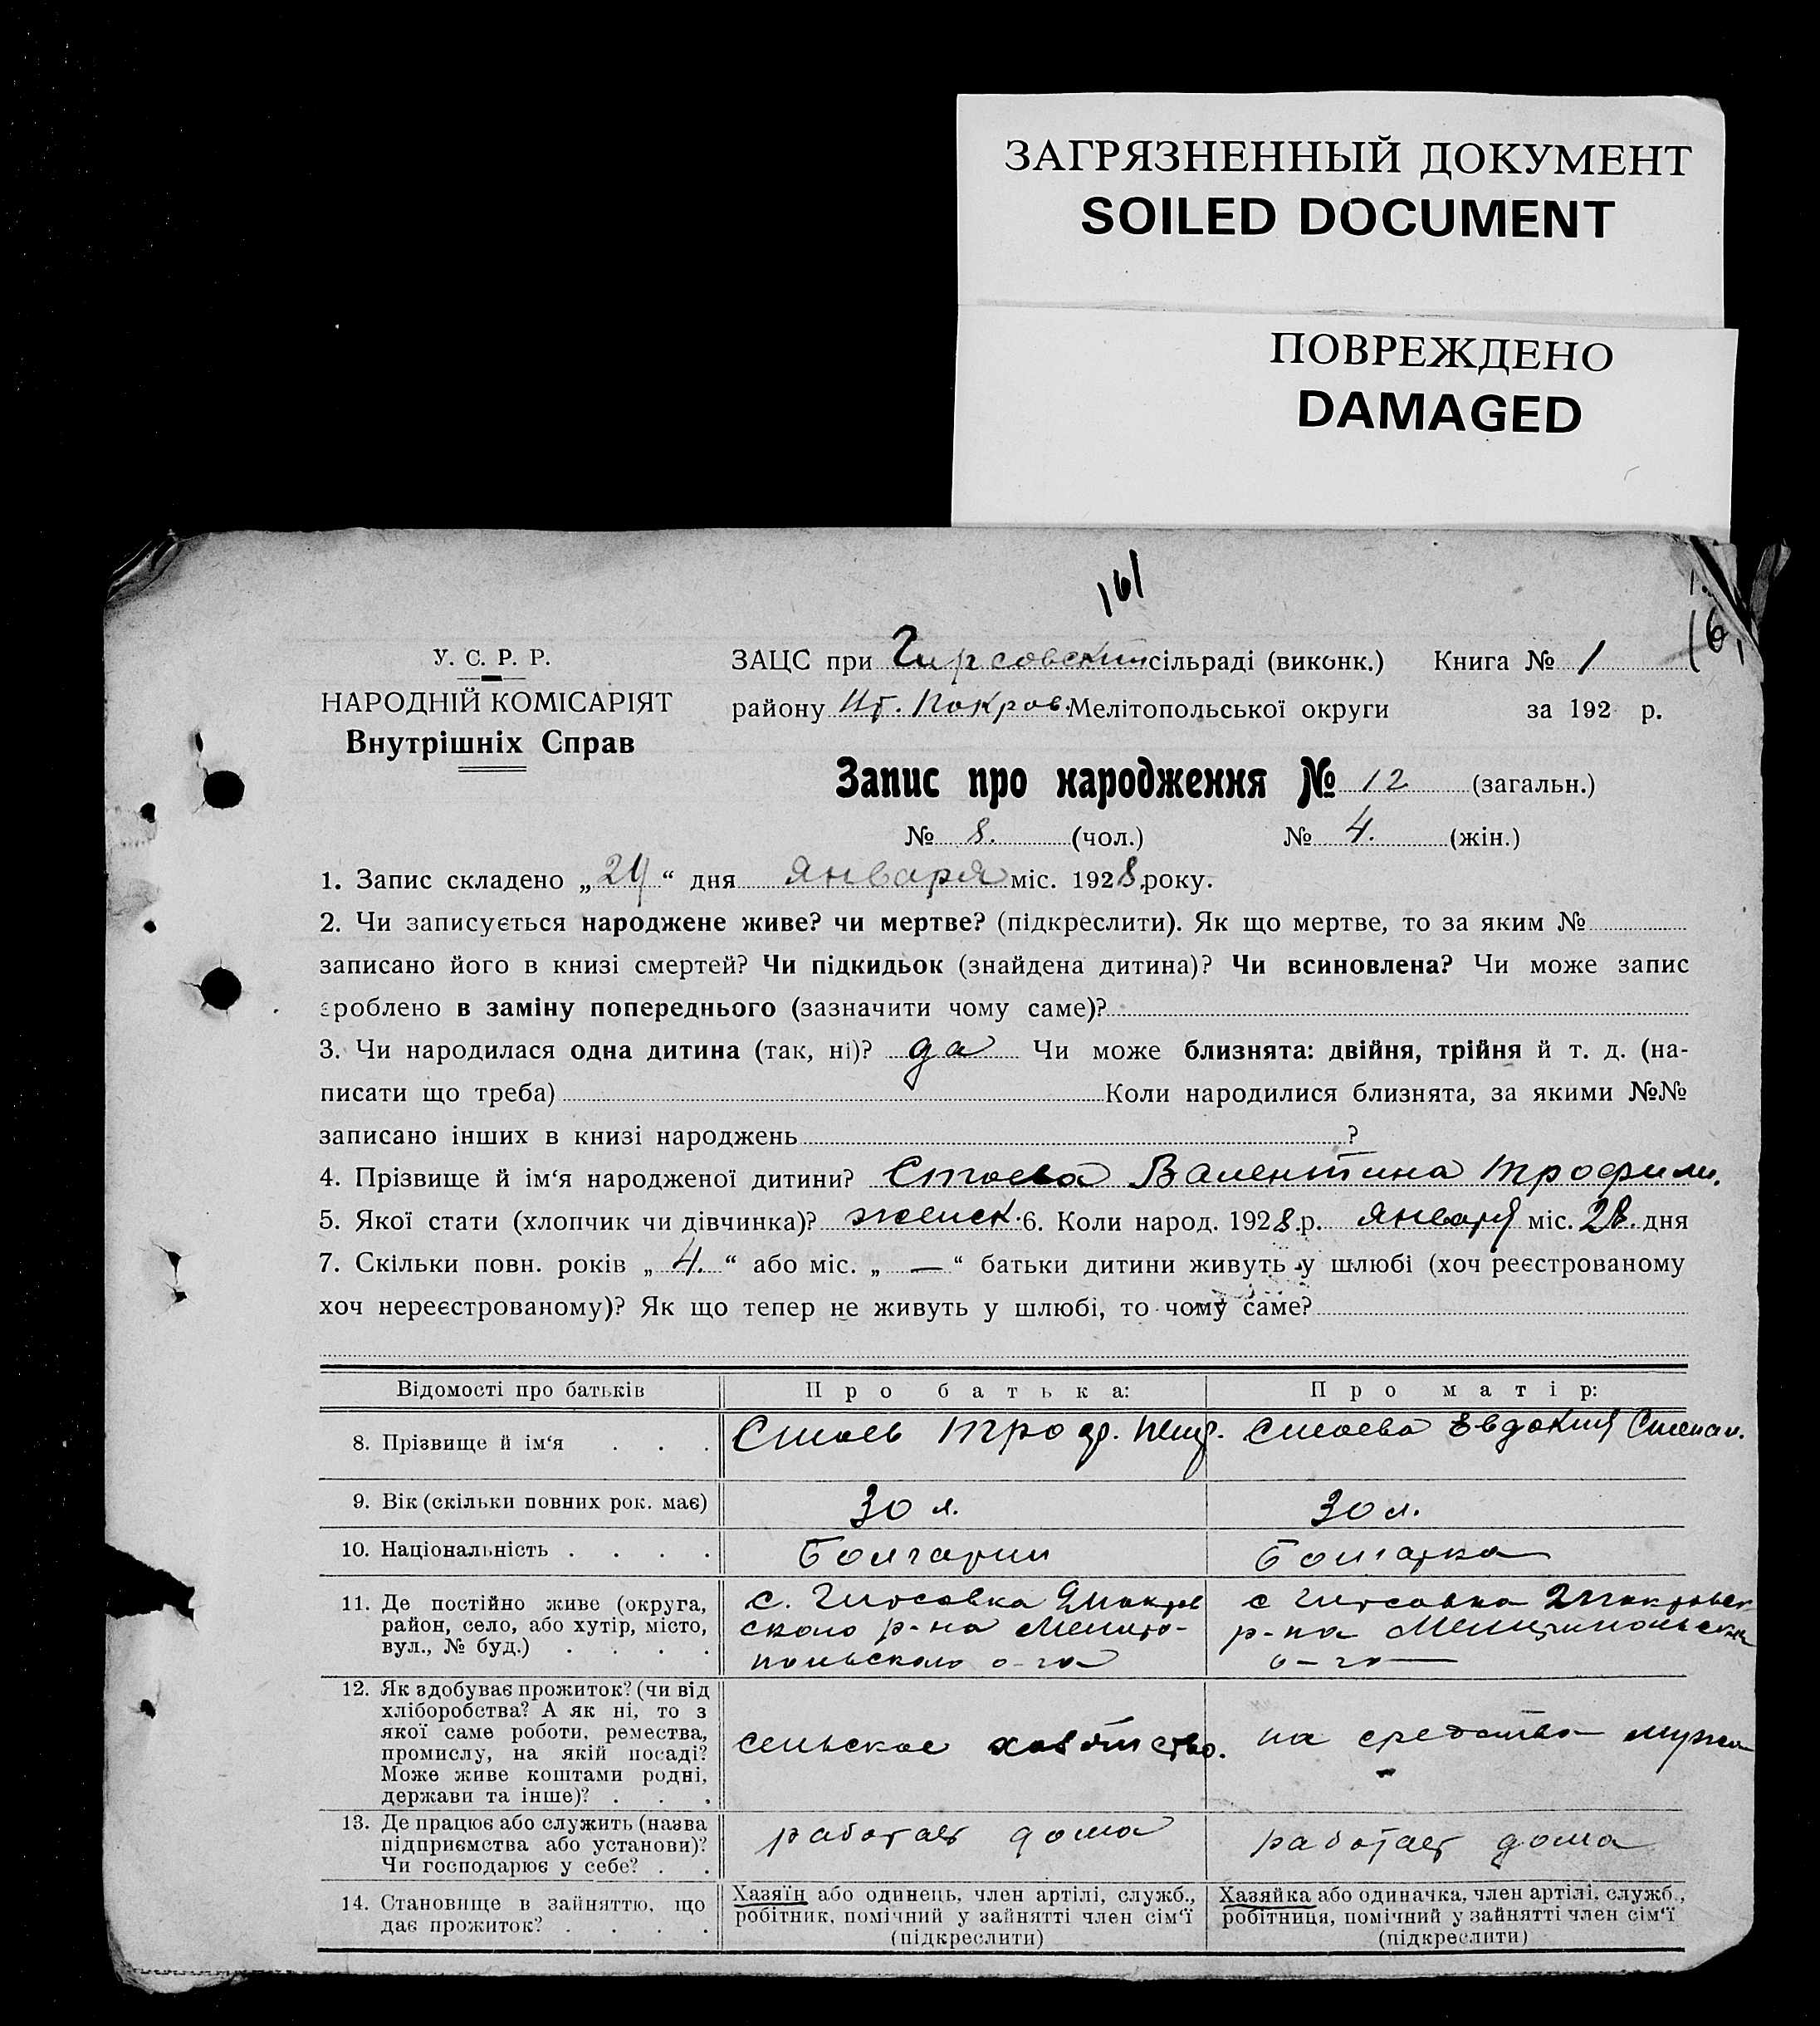 ЗАГРЯЗНЕННЫЙ ДОКУМЕНТ
SOILED DOCUMENT
ПОВРЕЖДЕНО
DAMAGED
161
У. С. Р. Р.
НАРОДНІЙ КОМІСАРІЯТ
Внутрішніх Справ
ЗАЦС при Гирсовским сільраді (виконк.) Книга № 1
району Покров. Мелітопольської округи за 192 р.
Запис про народження № 12 (загальн.)
№ 8. (чол.) № 4. (жін.)
1. Запис складено „29“ дня Января міс. 1928 року.
2. Чи записується народжене живе? чи мертве? (підкреслити). Як що мертве, то за яким №
записано його в книзі смертей? Чи підкидьок (знайдена дитина)? Чи всиновлена? Чи може запис
зроблено в заміну попереднього (зазначити чому саме)?
3. Чи народилася одна дитина (так, ні)? да Чи може близнята: двійня, трійня й т. д. (на-
писати що треба) Коли народилися близнята, за якими №№
записано інших в книзі народжень ?
4. Прізвище й ім‘я народженої дитини? Стоева Валентина Трофим.
5. Якої стати (хлопчик чи дівчинка)? женск. 6. Коли народ. 1928 р. Января міс. 28. дня
7. Скільки повн. років „4.“ або міс. „—“ батьки дитини живуть у шлюбі (хоч реєстрованому
хоч нереєстрованому)? Як що тепер не живуть у шлюбі, то чому саме?
Відомості про батьків Про батька: Про матір:
8. Прізвище й ім‘я . . . Стоев Троф. Петр. Стоева Евдокия Степан.
9. Вік (скільки повних рок. має) 30 л. 30 л.
10. Національність . . . . Болгарин Болгарка
11. Де постійно живе (округа,
район, село, або хутір, місто,
вул., № буд.) . . . .
с. Гирсовка
ского р-на Мелито-
польского о-га
с Гирсовка
р-на Мелитопольского
о-га
12. Як здобуває прожиток? (чи від
хліборобства? А як ні, то з
якої саме роботи, ремества,
промислу, на якій посаді?
Може живе коштами родні,
держави та інше)? . . .
сельское хозяйство.
на средства мужа
13. Де працює або служить (назва
підприємства або установи)?
Чи господарює у себе? . .
работает дома
работает дома
14. Становище в зайняттю, що
дає прожиток? . . . .
Хазяїн або одинець, член артілі, служб.,
робітник, помічний у зайнятті член сім‘ї
(підкреслити)
Хазяйка або одиначка, член артілі, служб.,
робітниця, помічний у зайнятті член сім‘ї
(підкреслити)